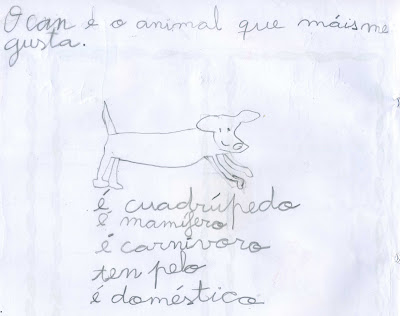 O can é o animal que máis me
gusta.
é cuadrúpedo
é mamífero
é carnívoro
ten pelo
é doméstico